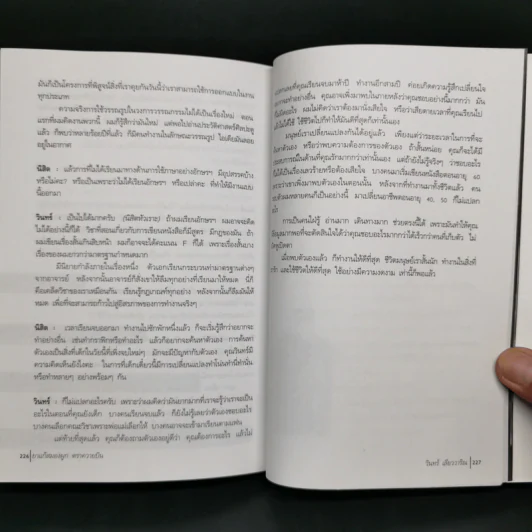 มันก็เป็นโครงการที่พิสูจน์สิ่งที่เราคุยกันวันนี้ว่าเราสามารถใช้การออกแบบในงาน
ทุกประเภท
ความจริงการใช้วรรณรูปในวงการวรรณกรรมไม่ได้เป็นเรื่องใหม่ ตอน
แรกที่ผมคิดงานพวกนี้ ผมก็รู้สึกว่ามันใหม่ แต่พอไปอ่านประวัติศาสตร์ศิลปะดู
แล้ว ก็พบว่าหลายร้อยปีที่แล้ว ก็มีคนทำงานในลักษณะวรรณรูป ไอเดียมันลอย
อยู่ในอากาศ
นิสิต : แล้วการที่ไม่ได้เรียนมาทางด้านการใช้ภาษาอย่างอักษรฯ มีอุปสรรคบ้าง
หรือไม่คะ? หรือเป็นเพราะว่าไม่ได้เรียนอักษรฯ หรือเปล่าคะ ที่ทำให้มีงานแบบ
นี้ออกมา
วินทร์ : เป็นไปได้มากครับ (นิสิตหัวเราะ) ถ้าผมเรียนอักษรฯ ผมอาจจะคิด
ไม่ได้อย่างนี้ก็ได้ วิชาที่สอนเกี่ยวกับการเขียนหนังสือก็มีสูตร มีกฎของมัน ถ้า
ผมเขียนเรื่องสั้นเกินสิบหน้า ผมก็อาจจะได้คะแนน F ก็ได้ เพราะเรื่องสั้นบาง
เรื่องของผมยาวกว่ามาตรฐานกำหนดมาก
มีนิยายกำลังภายในเรื่องหนึ่ง ตัวเอกเรียนกระบวนท่ามาตรฐานต่างๆ
จากอาจารย์ หลังจากนั้นอาจารย์ก็สั่งเขาให้ลืมทุกอย่างที่เรียนมาให้หมด นี่ก็
คือเคล็ดวิชาของเราเหมือนกัน เรียนรู้กฎเกณฑ์ทุกอย่าง หลังจากนั้นก็ลืมมันให้
หมด เพื่อที่จะสามารถก้าวไปสู่อิสรภาพของการทำงานจริงๆ
นิสิต : เวลาเรียนจบออกมา ทำงานไปซักพักหนึ่งแล้ว ก็จะเริ่มรู้สึกว่าอยากจะ
ทำอย่างอื่น เช่นทำกราฟิกหรือทำอะไร แล้วก็อยากจะค้นหาตัวเอง การค้นหา
ตัวเองเป็นสิ่งที่เด็กในวัยนี้ที่เพิ่งจบใหม่ๆ มักจะมีปัญหากับตัวเอง คุณวินทร์มี
ความคิดเห็นยังไงคะ ในการที่เด็กเดี๋ยวนี้มีการเปลี่ยนแปลงทำโน่นทำนี่ทำนั่น
หรือทำหลายๆ อย่างพร้อมๆ กัน
วินทร์ : ก็ไม่แปลกอะไรครับ เพราะว่าผมคิดว่ามันยากมากที่เราจะรู้ว่าเราจะเป็น
อะไรในตอนที่คุณยังเด็ก บางคนเรียนจบแล้ว ก็ยังไม่รู้เลยว่าตัวเองชอบอะไร
บางคนเลือกคณะวิชาเพราะพ่อแม่เลือกให้ บางคนอาจจะเข้ามาเรียนตามแฟน
แต่ท้ายที่สุดแล้ว คุณก็ต้องถามตัวเองอยู่ดีว่า คุณต้องการอะไร แล้วไม่
226
เลยที่คุณเรียนจบมาห้าปี ทำงานอีกสามปี ค่อยเกิดความรู้สึกเปลี่ยนใจ
อยากจะทำอย่างอื่น คุณอาจจะเพิ่งมาพบในภายหลังว่าคุณชอบอย่างนี้มากกว่า มัน
อะไร ผมไม่คิดว่าเราต้องมานั่งเสียใจ หรือว่าเสียดายเวลาที่คุณเรียนไป
ใช้ชีวิตในปีต่อไปก็ให้มันดีที่สุดก็เท่านั้นเอง
มนุษย์เราเปลี่ยนแปลงกันได้อยู่แล้ว เพียงแต่ว่าระยะเวลาในการที่จะ
ของตัวเอง หรือว่าพบความต้องการของตัวเอง ถ้าสั้นหน่อย คุณก็จะได้มี
ในด้านที่คุณรักมากกว่าเท่านั้นเอง แต่ถ้ายังไม่รู้จริงๆ ว่าชอบอะไร
เป็นเรื่องเลวร้ายหรือต้องเสียใจ บางคนมาเริ่มเขียนหนังสือตอนอายุ 60
เพิ่งมาพบตัวเองในตอนนั้น หลังจากที่ทำงานมาทั้งชีวิตแล้ว คน
มาเปลี่ยนอาชีพตอนอายุ 40, 50 ก็ไม่แปลก
การเป็นคนใฝ่รู้ อ่านมาก เดินทางมาก ช่วยตรงนี้ได้ เพราะมันทำให้คุณ
ข้อมูลมากพอที่จะตัดสินใจได้ว่าคุณชอบอะไรมากกว่าได้เร็วกว่าคนที่เก็บตัว ไม่
เมื่อพบตัวเองแล้ว ก็ทำงานให้ดีที่สุด ชีวิตมนุษย์เราสั้นนัก ทำงานในสิ่งที่
รัก และใช้ชีวิตให้ดีที่สุด ใช้อย่างมีความงดงาม เท่านี้ก็พอแล้ว
วินทร์ เลียววาริณ 227